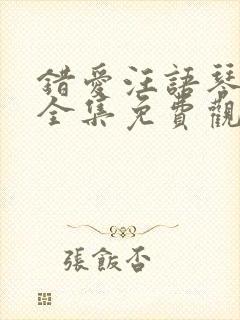 錯愛汪語琴
全集免費觀
張飯否